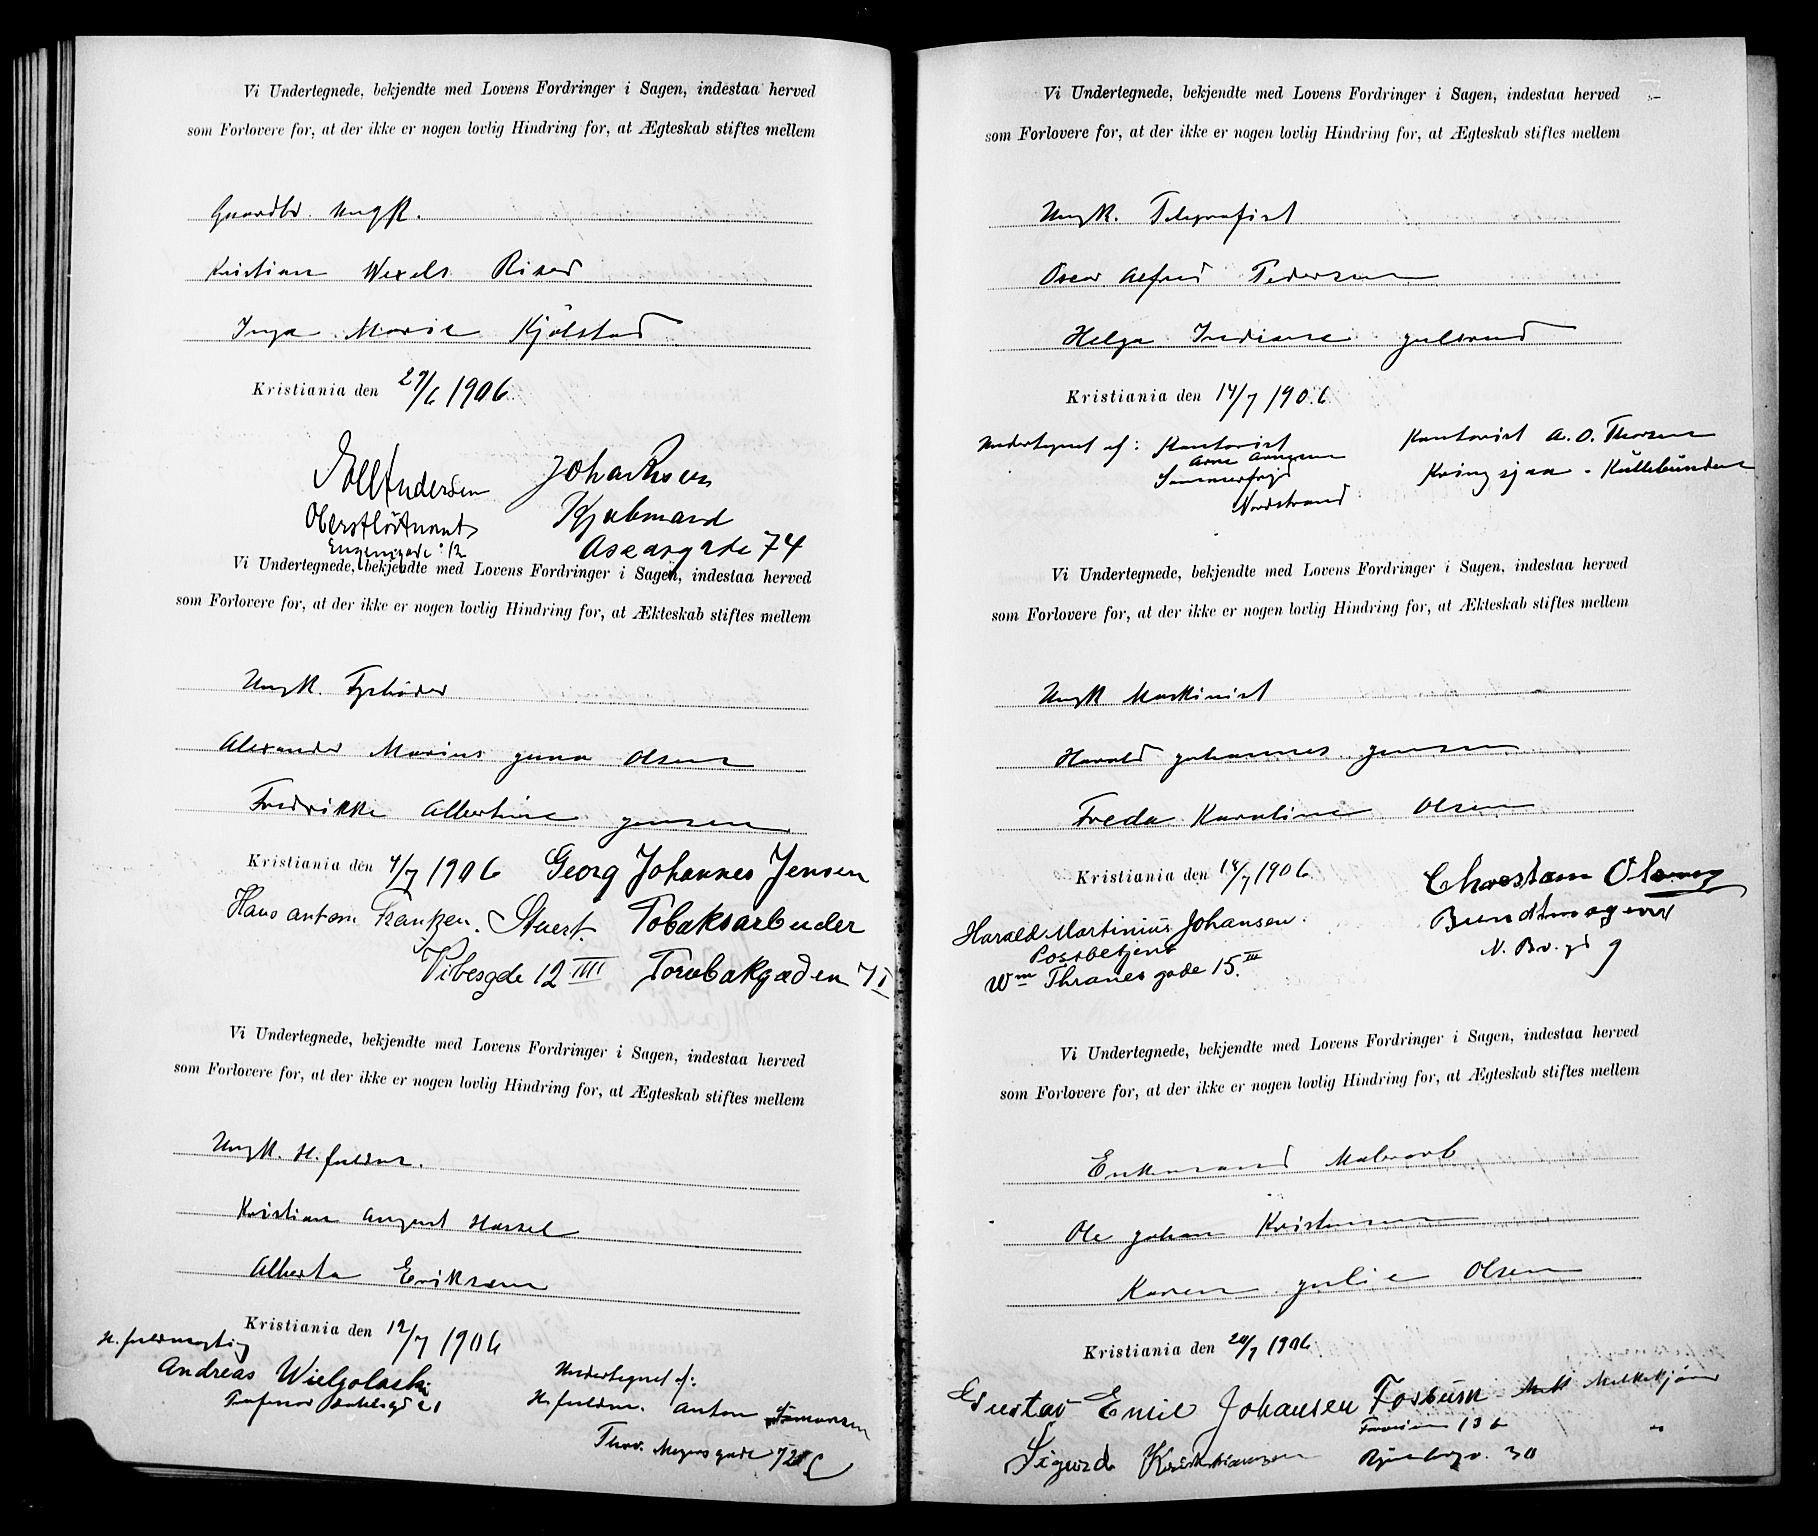 Vi Undertegnede, bekjendte med Lovens Fordringer i Sagen, indestaa herved
som Forlovere for, at der ikke er nogen lovlig Hindring for, at Ægteskab stiftes mellem
Ungk.
Kristian Wexels Riser
Inga Marie Kjölstad
Kristiania den 29/6 1906
Andersen Johansen
Oberstlöitnant Kjøbmand
Eugenigade 12 74
Vi Undertegnede, bekjendte med Lovens Fordringer i Sagen, indestaa herved
som Forlovere for, at der ikke er nogen lovlig Hindring for, at Ækteskab stiftes mellem
Ungk. Fyrbøder
Alexander Marius Olsen
Fredrikke Albertine Jensen
Kristiania den 4/7 1906 Georg Johannes Jensen
Hans Anton Frantzen. Stuert. Tobaksarbeider
Vibesgde 12 IIII Torvbakgaden 7 I
Vi Undertegnede, bekjendte med Lovens Fordringer i Sagen, indestaa herved
som Forlovere for, at der ikke er nogen lovlig Hindring for, at Ægteskab stiftes mellem
Ungk. H. fuldm.
Kristian August Hassel
Alberta Eriksen
Kristiania den 12/7 1906
H. fuldmægtig
Andreas Wielgolaski
Professor Dahlsgd 21
Undertegnet af:
H. fuldm. Anton
Thv. Meyersgade 72 C
Vi Undertegnede, bekjendte med Lovens Fordringer i Sagen, indestaa herved
som Forlovere for, at der ikke er nogen lovlig Hindring for, at Ægteskab stiftes mellem
Ungk. Telegrafist
Oscar Alfred Pedersen
Helga Indiane Julsrud
Kristiania den 14/7 1906
Undertegnet af: Kontorist
Arne Arnesen
Nordstrand
Kontorist A. O. Thorsen
Kringsjaa - Kullebunden
Vi Undertegnede, bekjendte med Lovens Fordringer i Sagen, indestaa herved
som Forlovere for, at der ikke er nogen lovlig Hindring for, at Ækteskab stiftes mellem
Ungk Maskinist
Harald Johannes Jensen
Freda Karoline Olsen
Kristiania den 14/7 1906
Christian Olsen
Bundtmager
N. 9
Harald Martinius Johansen.
Postbetjent
Wm Thranes gade 15. III
Vi Undertegnede, bekjendte med Lovens Fordringer i Sagen, indestaa herved
som Forlovere for, at der ikke er nogen lovlig Hindring for, at Ægteskab stiftes mellem
Enkemand Malerarb
Ole Johan Kristensen
Karen Julie Olsen
Kristiania den 20/7 1906
Gustav Emil Johansen
Sigurd Kristiansen 30